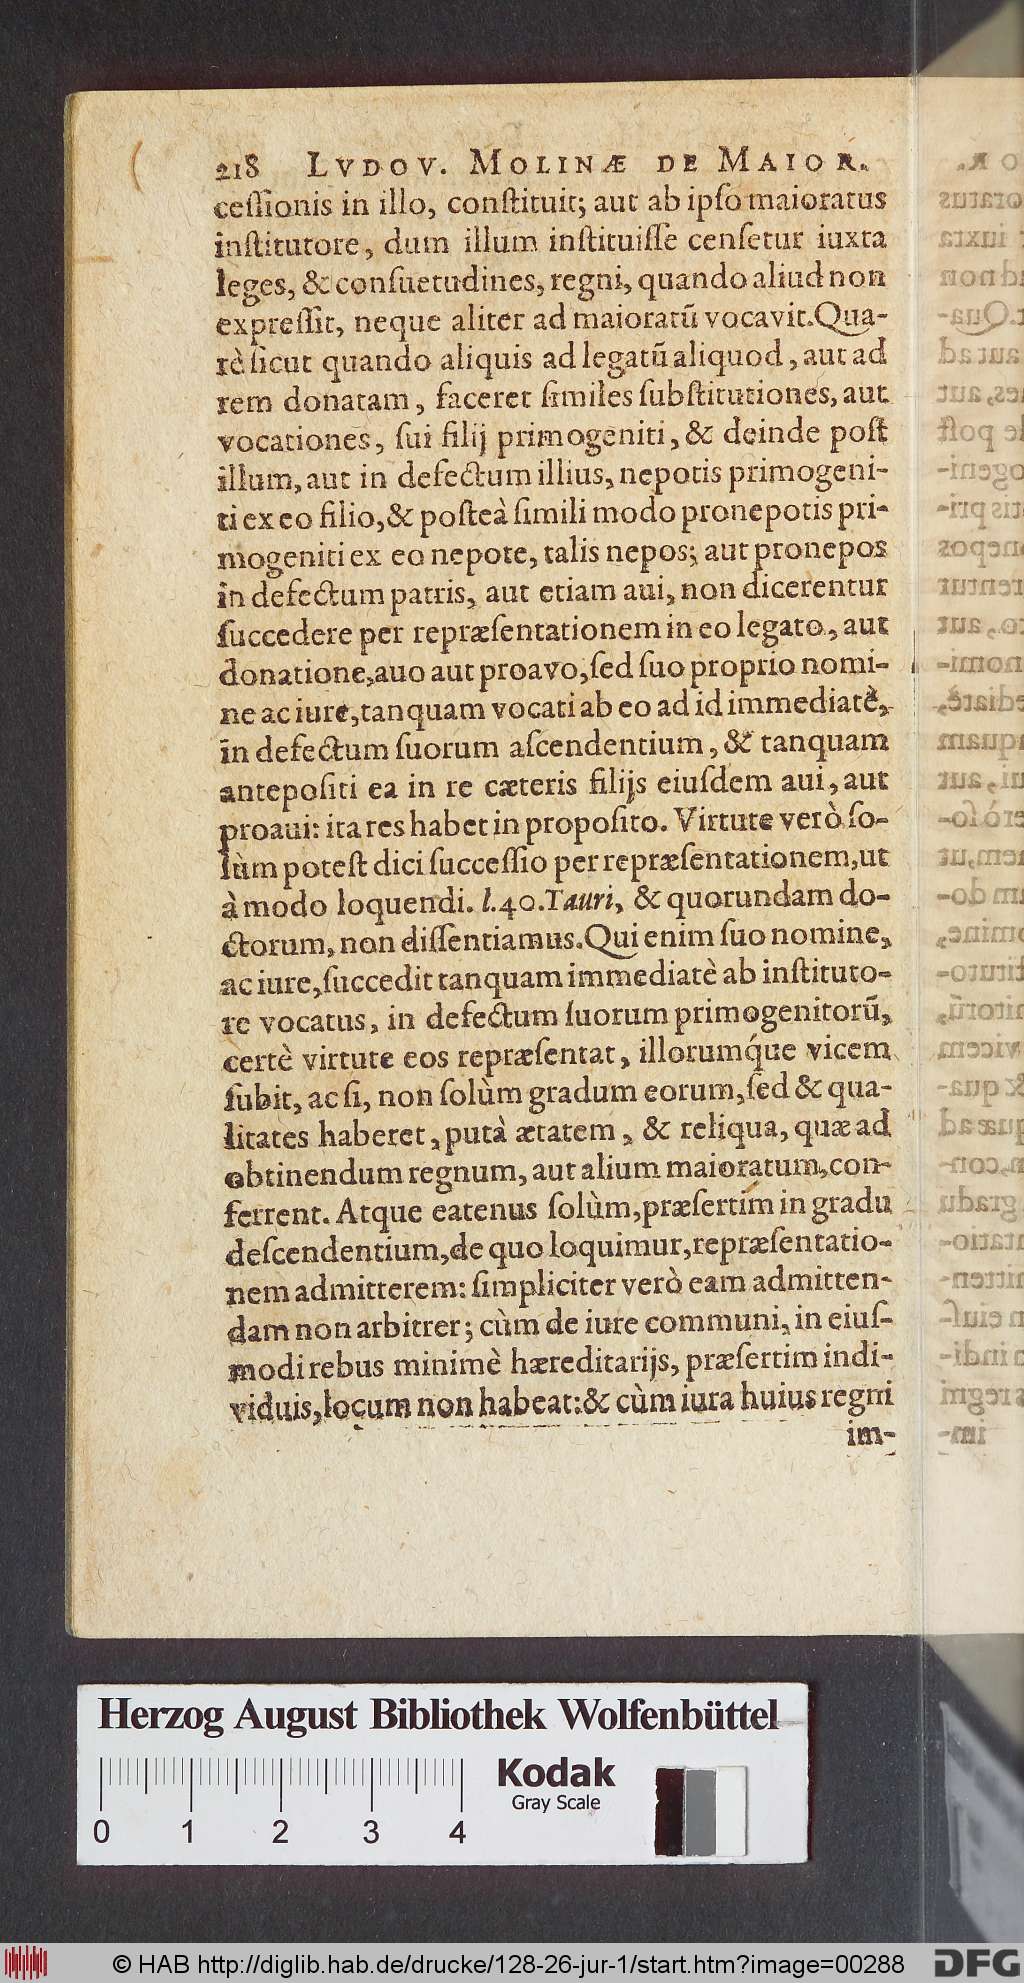 218 LVDOV. MOLINÆ DE MAIOR.
ceſſionis in illo, conſtituit; aut ab ipſo maioratus
inſtitutore, dum illum inſtituiſſe cenſetur iuxta
leges, & conſuetudines, regni, quando aliud non
expreſſit, neque aliter ad maioratũ vocavit. Qua-
rè ſicut quando aliquis ad legatũ aliquod, aut ad
rem donatam, faceret ſimiles ſubſtitutiones, aut
vocationes, ſui filij primogeniti, & deinde poſt
illum, aut in defectum illius, nepotis primogeni-
ti ex eo filio, & poſteà ſimili modo pronepotis pri-
mogeniti ex eo nepote, talis nepos; aut pronepos
in defectum patris, aut etiam aui, non dicerentur
ſuccedere per repræſentationem in eo legato, aut
donatione, auo aut proavo, ſed ſuo proprio nomi-
ne ac iure, tanquam vocati ab eo ad id immediatè,
in defectum ſuorum aſcendentium, & tanquam
antepoſiti ea in re cæteris filijs eiuſdem aui, aut
proaui: ita res habet in propoſito. Virtute verò ſo-
lùm poteſt dici ſucceſſio per repræſentationem, ut
à modo loquendi. l. 40. Tauri, & quorundam do-
ctorum, non diſſentiamus. Qui enim ſuo nomine,
ac iure, ſuccedit tanquam immediatè ab inſtituto-
re vocatus, in defectum ſuorum primogenitorũ,
certè virtute eos repræſentat, illorumq́ue vicem
ſubit, ac ſi, non ſolùm gradum eorum, ſed & qua-
litates haberet, putà ætatem, & reliqua, quæ ad
obtinendum regnum, aut alium maioratum, con-
ferrent. Atque eatenus ſolùm, præſertim in gradu
deſcendentium, de quo loquimur, repræſentatio-
nem admitterem: ſimpliciter verò eam admitten-
dam non arbitrer; cùm de iure communi, in eiuſ-
modi rebus minimè hæreditarijs, præſertim indi-
viduis, locum non habeat: & cùm iura huius regni
im-
Herzog August Bibliothek Wolfenbüttel
Kodak
Gray Scale
0 1 2 3 4
© HAB http://diglib.hab.de/drucke/128-26-jur-1/start.htm?image=00288
DFG